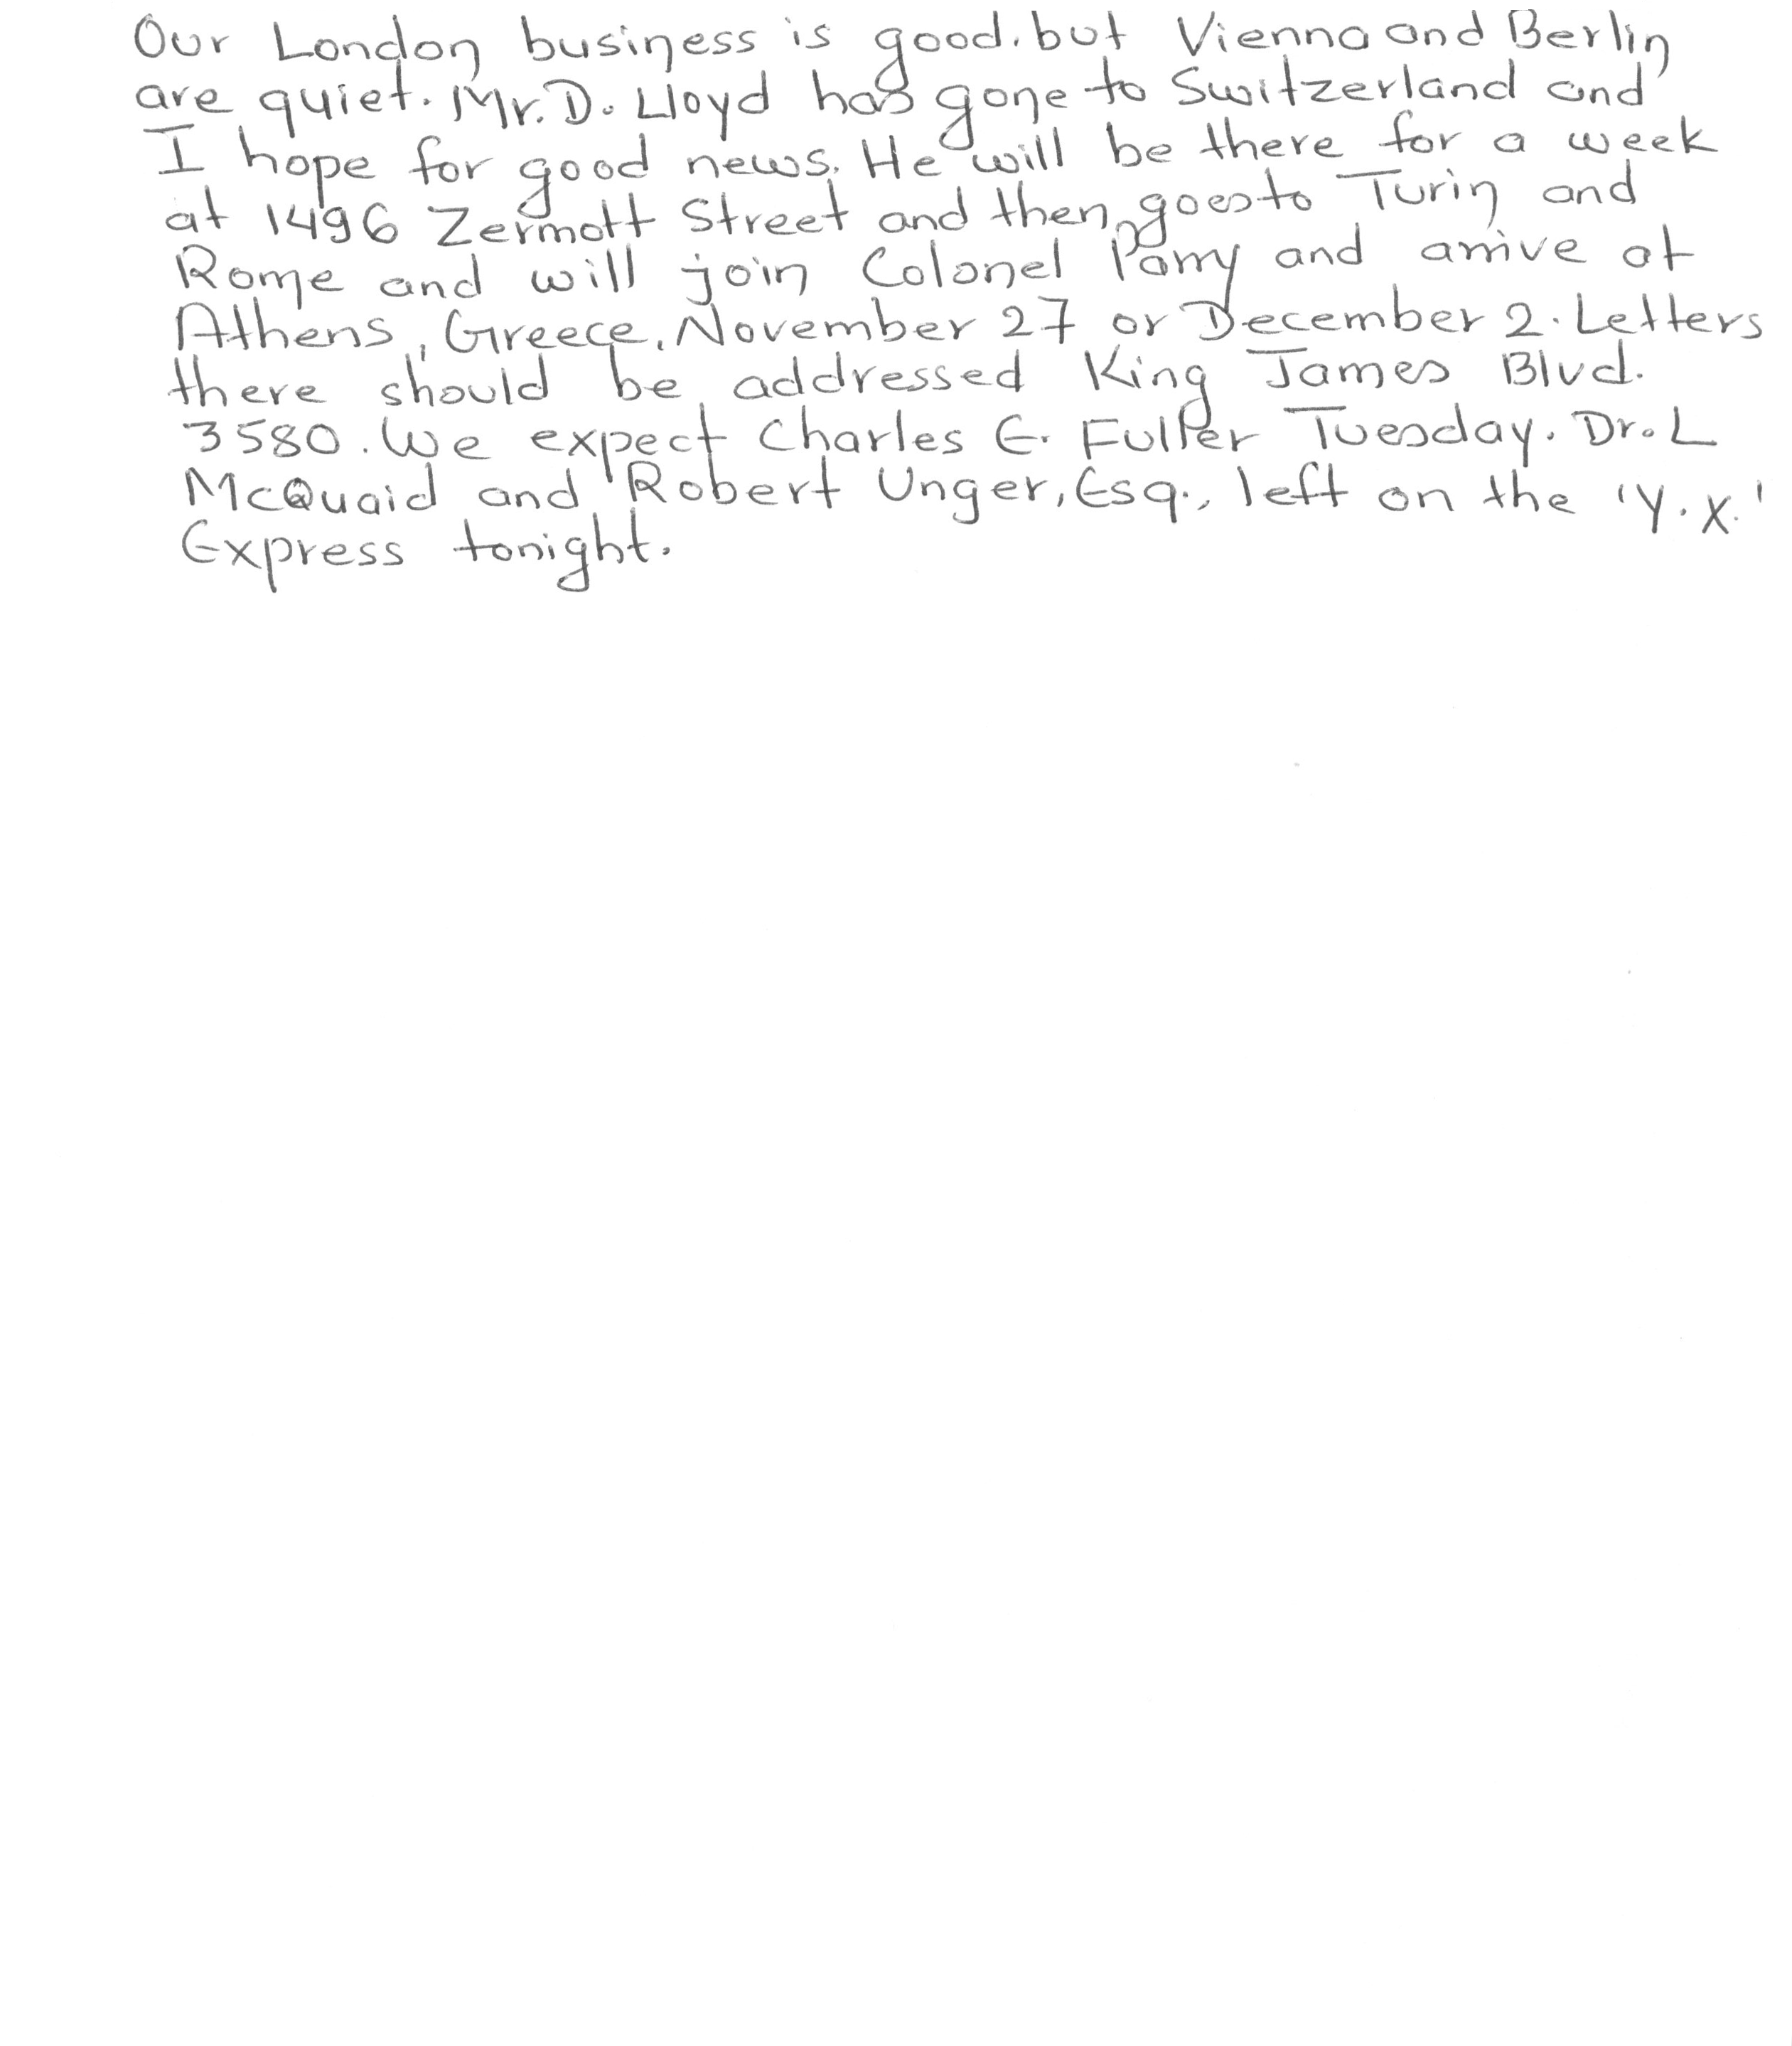 Our London business is good. but Vienna and Berlin
are quiet. Mr. D. Lloyd has gone to Switzerland and
I hope for good news. He will be there for a week
at 1496 Zermott Street and then goes to Turin and
Rome and will join Colonel Parry and arrive at
Athens, Greece, November 27 or December 2. Letters
there should be addressed King James Blvd.
3580. We expect Charles E. Fuller Tuesday. Dr. L
McQuaid and Robert Unger, Esq., left on the 'Y.X.'
Express tonight.